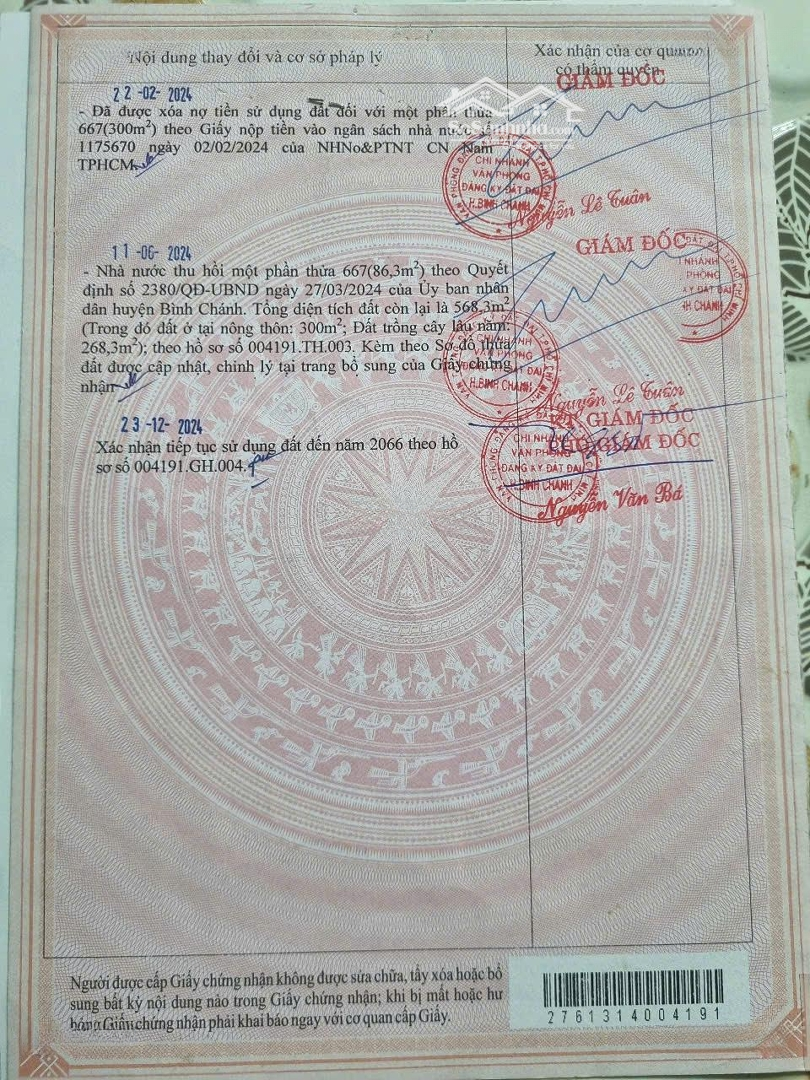 Nội dung thay đổi và cơ sở pháp lý
Xác nhận của cơ quan
có thẩm quyền
22-02-2024
- Đã được xóa nợ tiền sử dụng đất đối với một phần thửa
667(300m²) theo Giấy nộp tiền vào ngân sách nhà nước số
1175670 ngày 02/02/2024 của NHNo&PTNT CN Nam
TPHCM
GIÁM ĐỐC
CHI NHÁNH
VĂN PHÒNG
ĐĂNG KÝ ĐẤT ĐAI
H.BÌNH CHÁNH
Nguyễn Lê Tuân
11-06-2024
- Nhà nước thu hồi một phần thửa 667(86,3m²) theo Quyết
định số 2380/QĐ-UBND ngày 27/03/2024 của Ủy ban nhân
dân huyện Bình Chánh. Tổng diện tích đất còn lại là 568,3m²
(Trong dó đất ở tại nông thôn: 300m²; Đất trồng cây lâu năm:
268,3m²); theo hồ sơ số 004191.TH.003. Kèm theo Sơ đồ thửa
đất được cập nhật, chỉnh lý tại trang bổ sung của Giấy chứng
nhận
GIÁM ĐỐC
NHÁNH
PHÒNG
KÝ ĐẤT ĐAI
H CHÁNH
CHI NHÁNH
VĂN PHÒNG
ĐĂNG KÝ ĐẤT ĐAI
H.BÌNH CHÁNH
Nguyễn Lê Tuân
23-12-2024
Xác nhận tiếp tục sử dụng đất đến năm 2066 theo hồ
sơ số 004191.GH.004.
KT. GIÁM ĐỐC
PHÓ GIÁM ĐỐC
CHI NHÁNH
VĂN PHÒNG
ĐĂNG KÝ ĐẤT ĐAI
H.BÌNH CHÁNH
Nguyễn Văn Bá
Người được cấp Giấy chứng nhận không được sửa chữa, tẩy xóa hoặc bổ
sung bất kỳ nội dung nào trong Giấy chứng nhận; khi bị mất hoặc hư
hỏng Giấy chứng nhận phải khai báo ngay với cơ quan cấp Giấy.
2761314004191